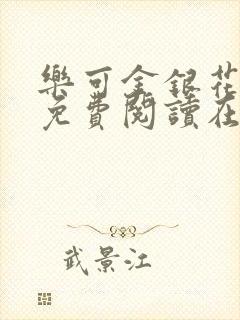 樂可金銀花
免費閱讀在
武景江